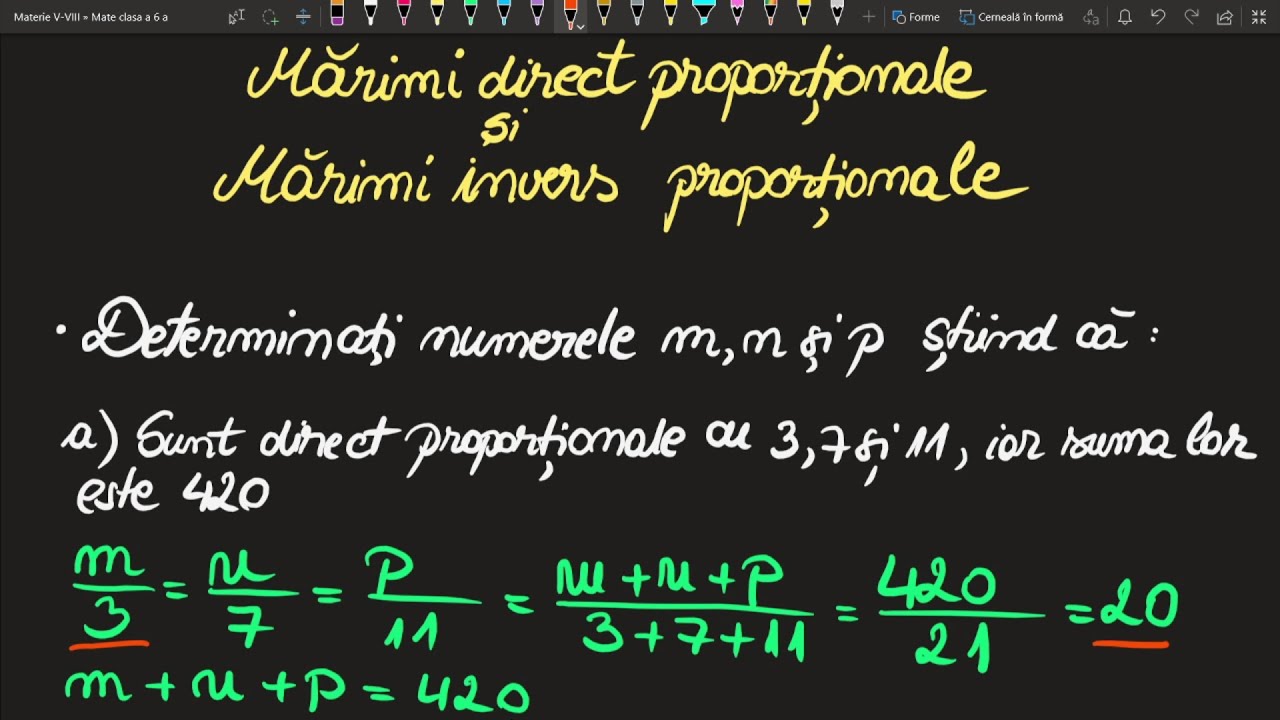 Materie V-VIII » Mate clasa a 6 a
Forme
Cerneală în formă
Mărimi direct proporționale
și
Mărimi invers proporționale
• Determinați numerele m, n și p știind că :
a) Sunt direct proporționale cu 3, 7 și 11, iar suma lor
este 420
m/3 = n/7 = p/11 = m+n+p/3+7+11 = 420/21 = 20
m + n + p = 420